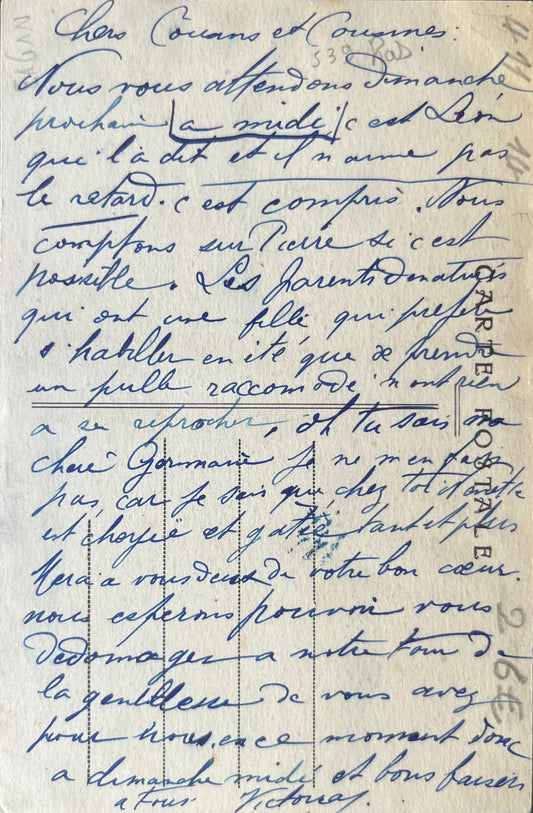 Chers Cousins et Cousines :
Nous vous attendons Dimanche
prochain a midi c est Léon
que l'a dit et il n aime pas
le retard. c est compris. Nous
comptons sur Pierre si c est
possible. Les parents Denaturés
qui ont une fille qui prefere
s'habiller en été que de prendre
un pulle raccomodé n ont rien
a se reprocher, oh tu sais ma
cheré Germaine je ne m en fais
pas, car je sais que chez toi
est choyée et gatée tant et plus
Merci a vous deux de votre bon cœur.
nous esperons pouvoir vous
Dedomager a notre tour de
la gentillesse de vous avez
pour nous. en ce moment donc
a dimanche midi et bons baisers
a tous
CARTE POSTALE
26E